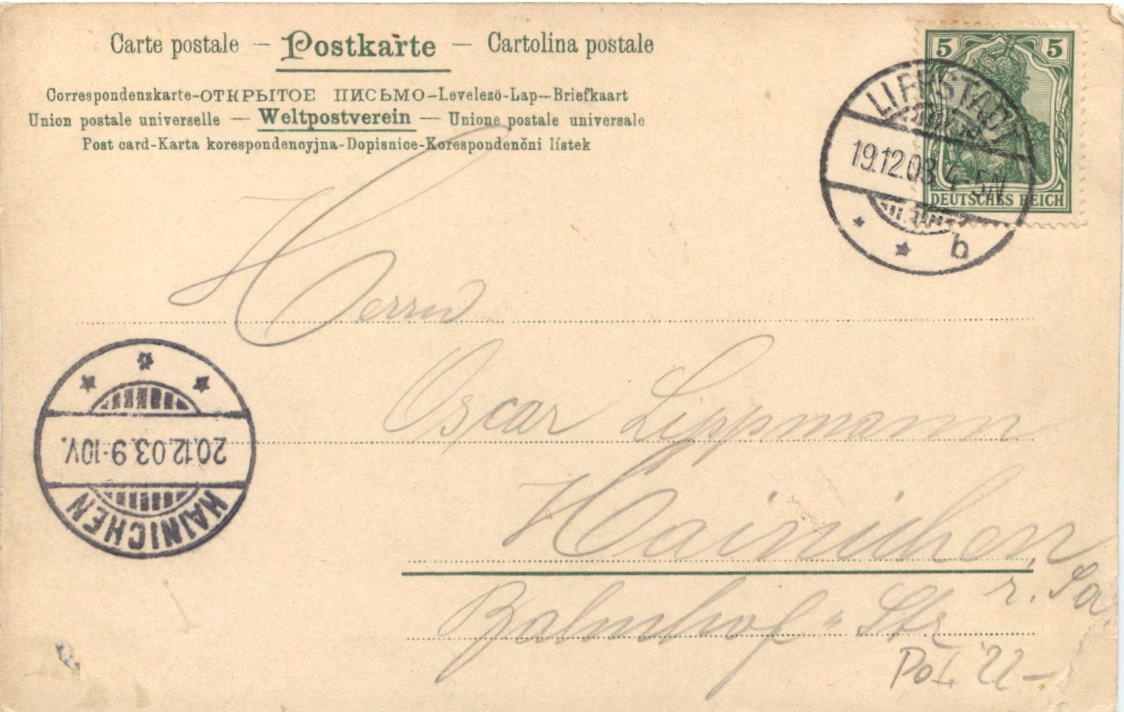 Carte postale — Postkarte — Cartolina postale
Correspondenzkarte-ОТКРЫТОЕ ПИСЬМО-Levelezö-Lap-Briefkaart
Union postale universelle — Weltpostverein — Unione postale universale
Post card-Karta korespondencyjna-Dopisnice-Korespondenční lístek
5 5
DEUTSCHES REICH
LIEBSTADT
19.12.03. 4-5N.
b
Herrn
Oscar Lippmann
Hainichen
i. Sa
Bahnhof-Str
20.12.03. 9-10V.
HAINICHEN
22-